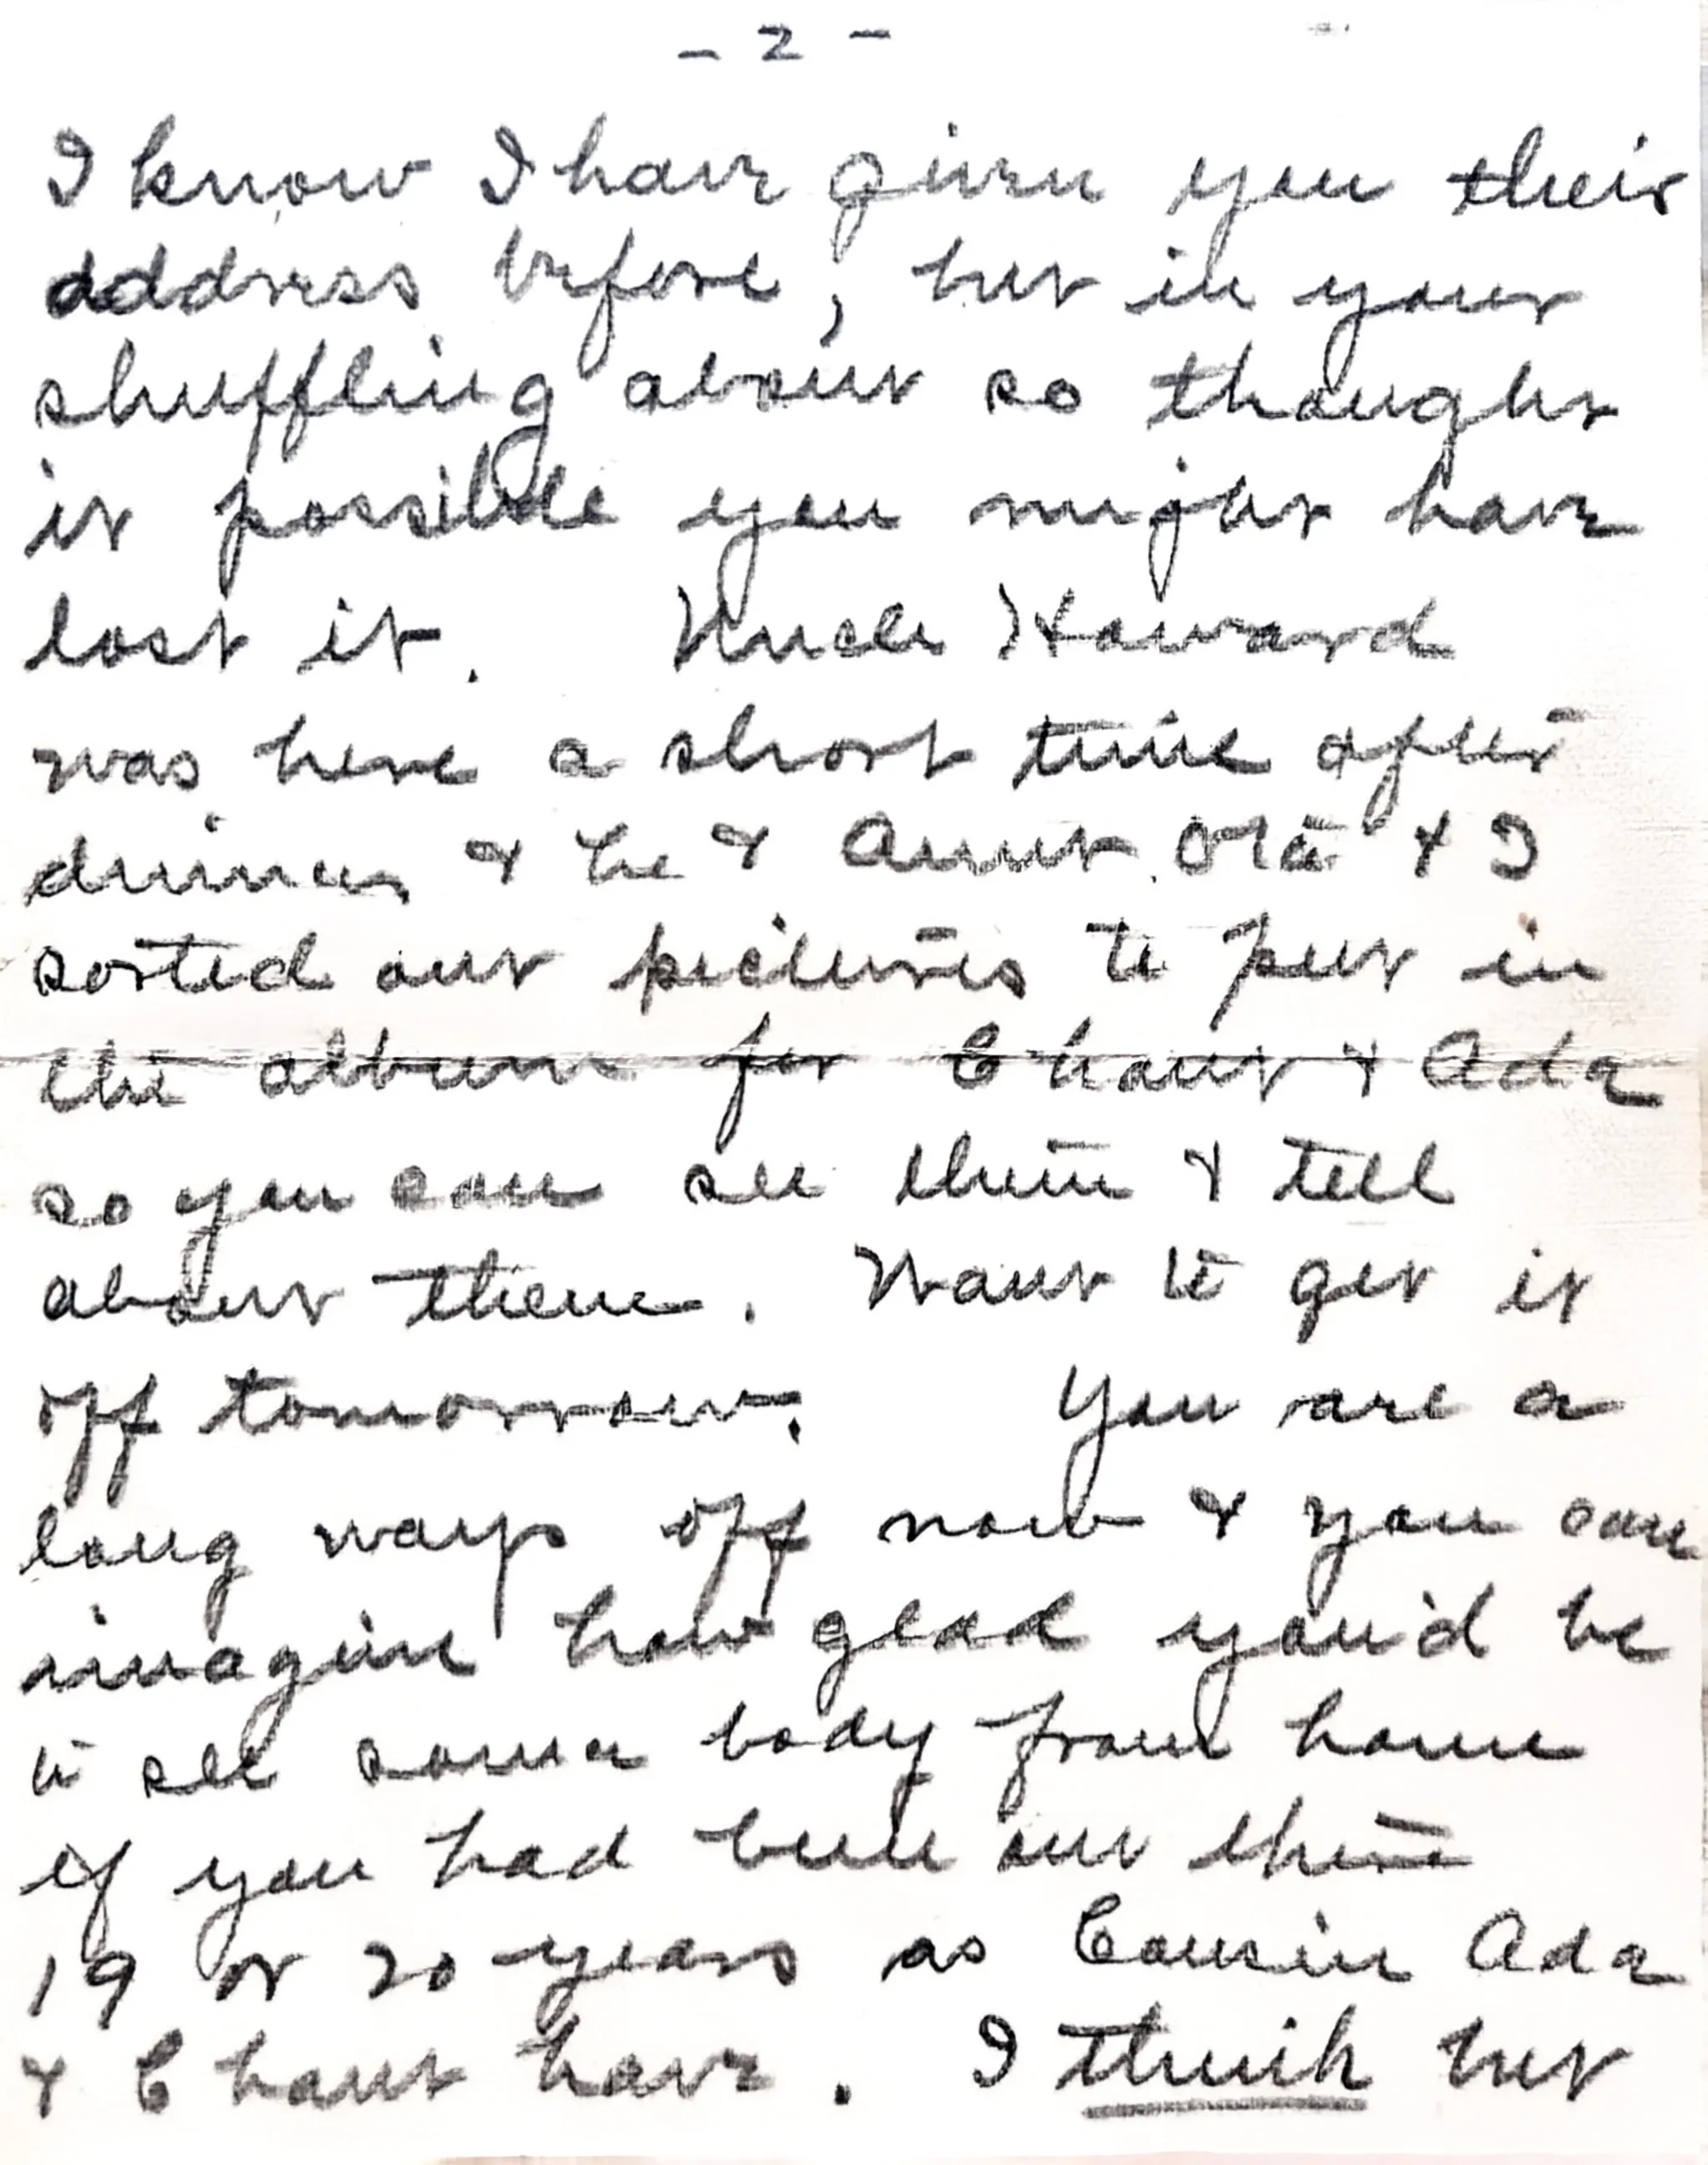 - 2 -
I know I have given you their
address before, but in your
shuffling about so thought
it possible you might have
lost it. Uncle Howard
was here a short time after
dinner & he & Aunt Ola & I
sorted out pictures to put in
the album for Chant & Ada
so you can see them & tell
about them. Want to get it
off tomorrow. You are a
long ways off now & you can
imagine how glad you'd be
to see some body from home
if you had been out there
19 or 20 years as Cousin Ada
& Chant have. I think but